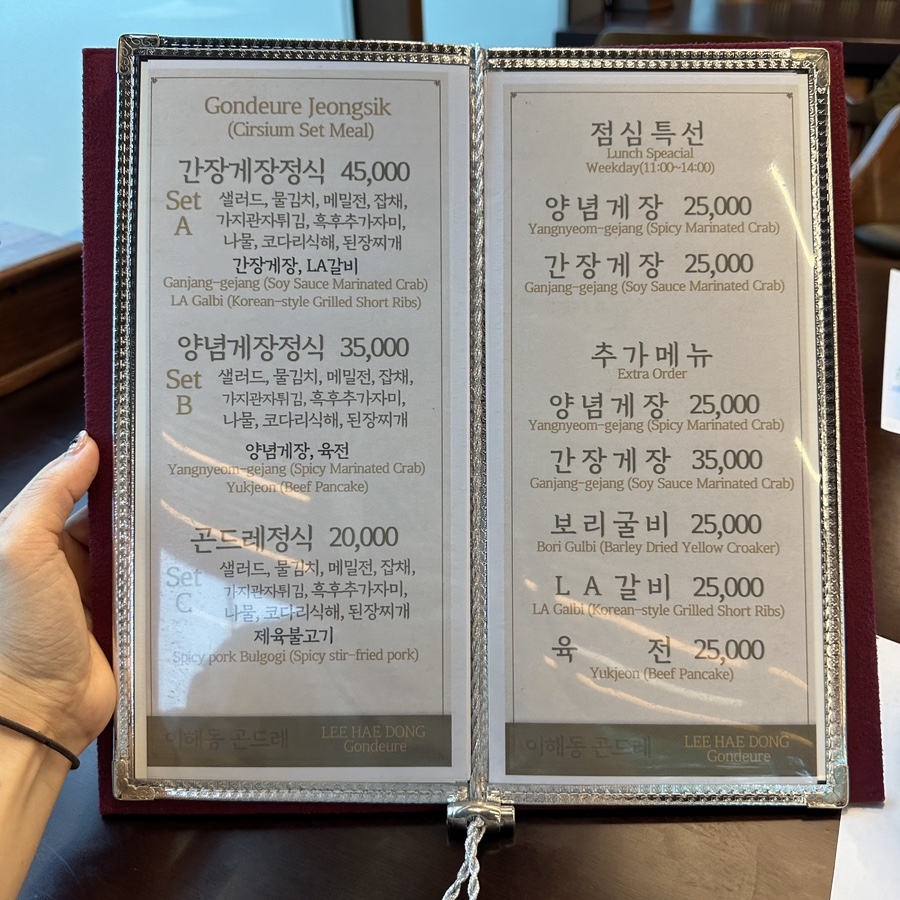 Gondeure Jeongsik
(Cirsium Set Meal)
간장게장정식 45,000
Set A
샐러드, 물김치, 메밀전, 잡채,
가지관자튀김, 흑후추가자미,
나물, 코다리식해, 된장찌개
간장게장, LA갈비
Ganjang-gejang (Soy Sauce Marinated Crab)
LA Galbi (Korean-style Grilled Short Ribs)
양념게장정식 35,000
Set B
샐러드, 물김치, 메밀전, 잡채,
가지관자튀김, 흑후추가자미,
나물, 코다리식해, 된장찌개
양념게장, 육전
Yangnyeom-gejang (Spicy Marinated Crab)
Yukjeon (Beef Pancake)
곤드레정식 20,000
Set C
샐러드, 물김치, 메밀전, 잡채,
가지관자튀김, 흑후추가자미,
나물, 코다리식해, 된장찌개
제육불고기
Spicy pork Bulgogi (Spicy stir-fried pork)
이해동 곤드레 LEE HAE DONG
Gondeure
점심특선
Lunch Speacial
Weekday(11:00~14:00)
양념게장 25,000
Yangnyeom-gejang (Spicy Marinated Crab)
간장게장 25,000
Ganjang-gejang (Soy Sauce Marinated Crab)
추가메뉴
Extra Order
양념게장 25,000
Yangnyeom-gejang (Spicy Marinated Crab)
간장게장 35,000
Ganjang-gejang (Soy Sauce Marinated Crab)
보리굴비 25,000
Bori Gulbi (Barley Dried Yellow Croaker)
LA갈비 25,000
LA Galbi (Korean-style Grilled Short Ribs)
육 전 25,000
Yukjeon (Beef Pancake)
이해동 곤드레 LEE HAE DONG
Gondeure